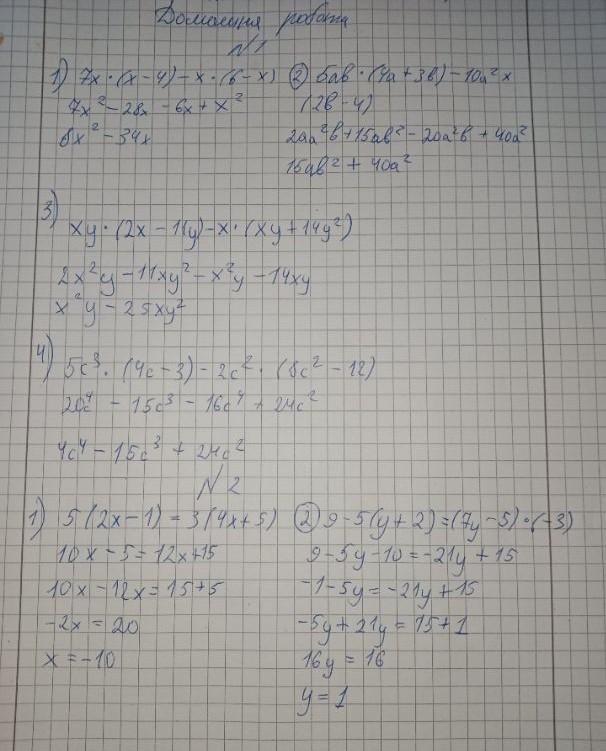 Домашня робота
№1
1) 7x·(x-4)-x·(6-x)
7x²-28x-6x+x²
8x²-34x
② 5ab·(4a+3b)-10a²x
(2b-4)
20a²b+15ab²-20a²b+40a²
15ab²+40a²
3)
xy·(2x-11y)-x·(xy+14y²)
2x²y-11xy²-x²y-14xy
x²y-25xy²
4)
5c³·(4c-3)-2c²·(8c²-12)
20c⁴-15c³-16c⁴+24c²
4c⁴-15c³+24c²
№2
1) 5(2x-1)=3(4x+5)
10x-5=12x+15
10x-12x=15+5
-2x=20
x=-10
② 9-5(y+2)=(7y-5)·(-3)
9-5y-10=-21y+15
-1-5y=-21y+15
-5y+21y=15+1
16y=16
y=1